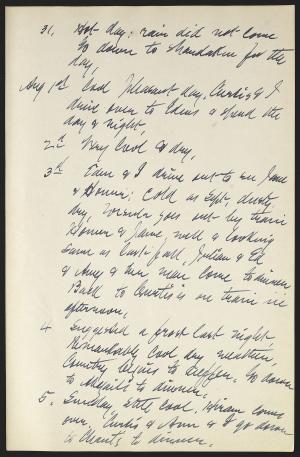 31, Hot day; rain did not come
Go down to Shandaken for the
day,
Aug 1st Cool pleasant day, Curtis & I
drive over to Edens & spend the
day & night,
2d Very Cool to day,
3d Eden & I drive out to see Jane
& Homer; Cold as Sept, dusty,
dry, Ursula goes out by train
Homer & Jane well & looking
same as last fall, Julian & Ed
& Amy & her man come to dinner
Back to Curtis's on train in
afternoon,
4 Suggested a frost last night,
Remarkably cool, dry weather,
Country begins to suffer, Go down
to Abigail's to dinner,
5. Sunday, still cool, Hiram comes
over, Curtis & Ann & I go down
to Chants to dinner,